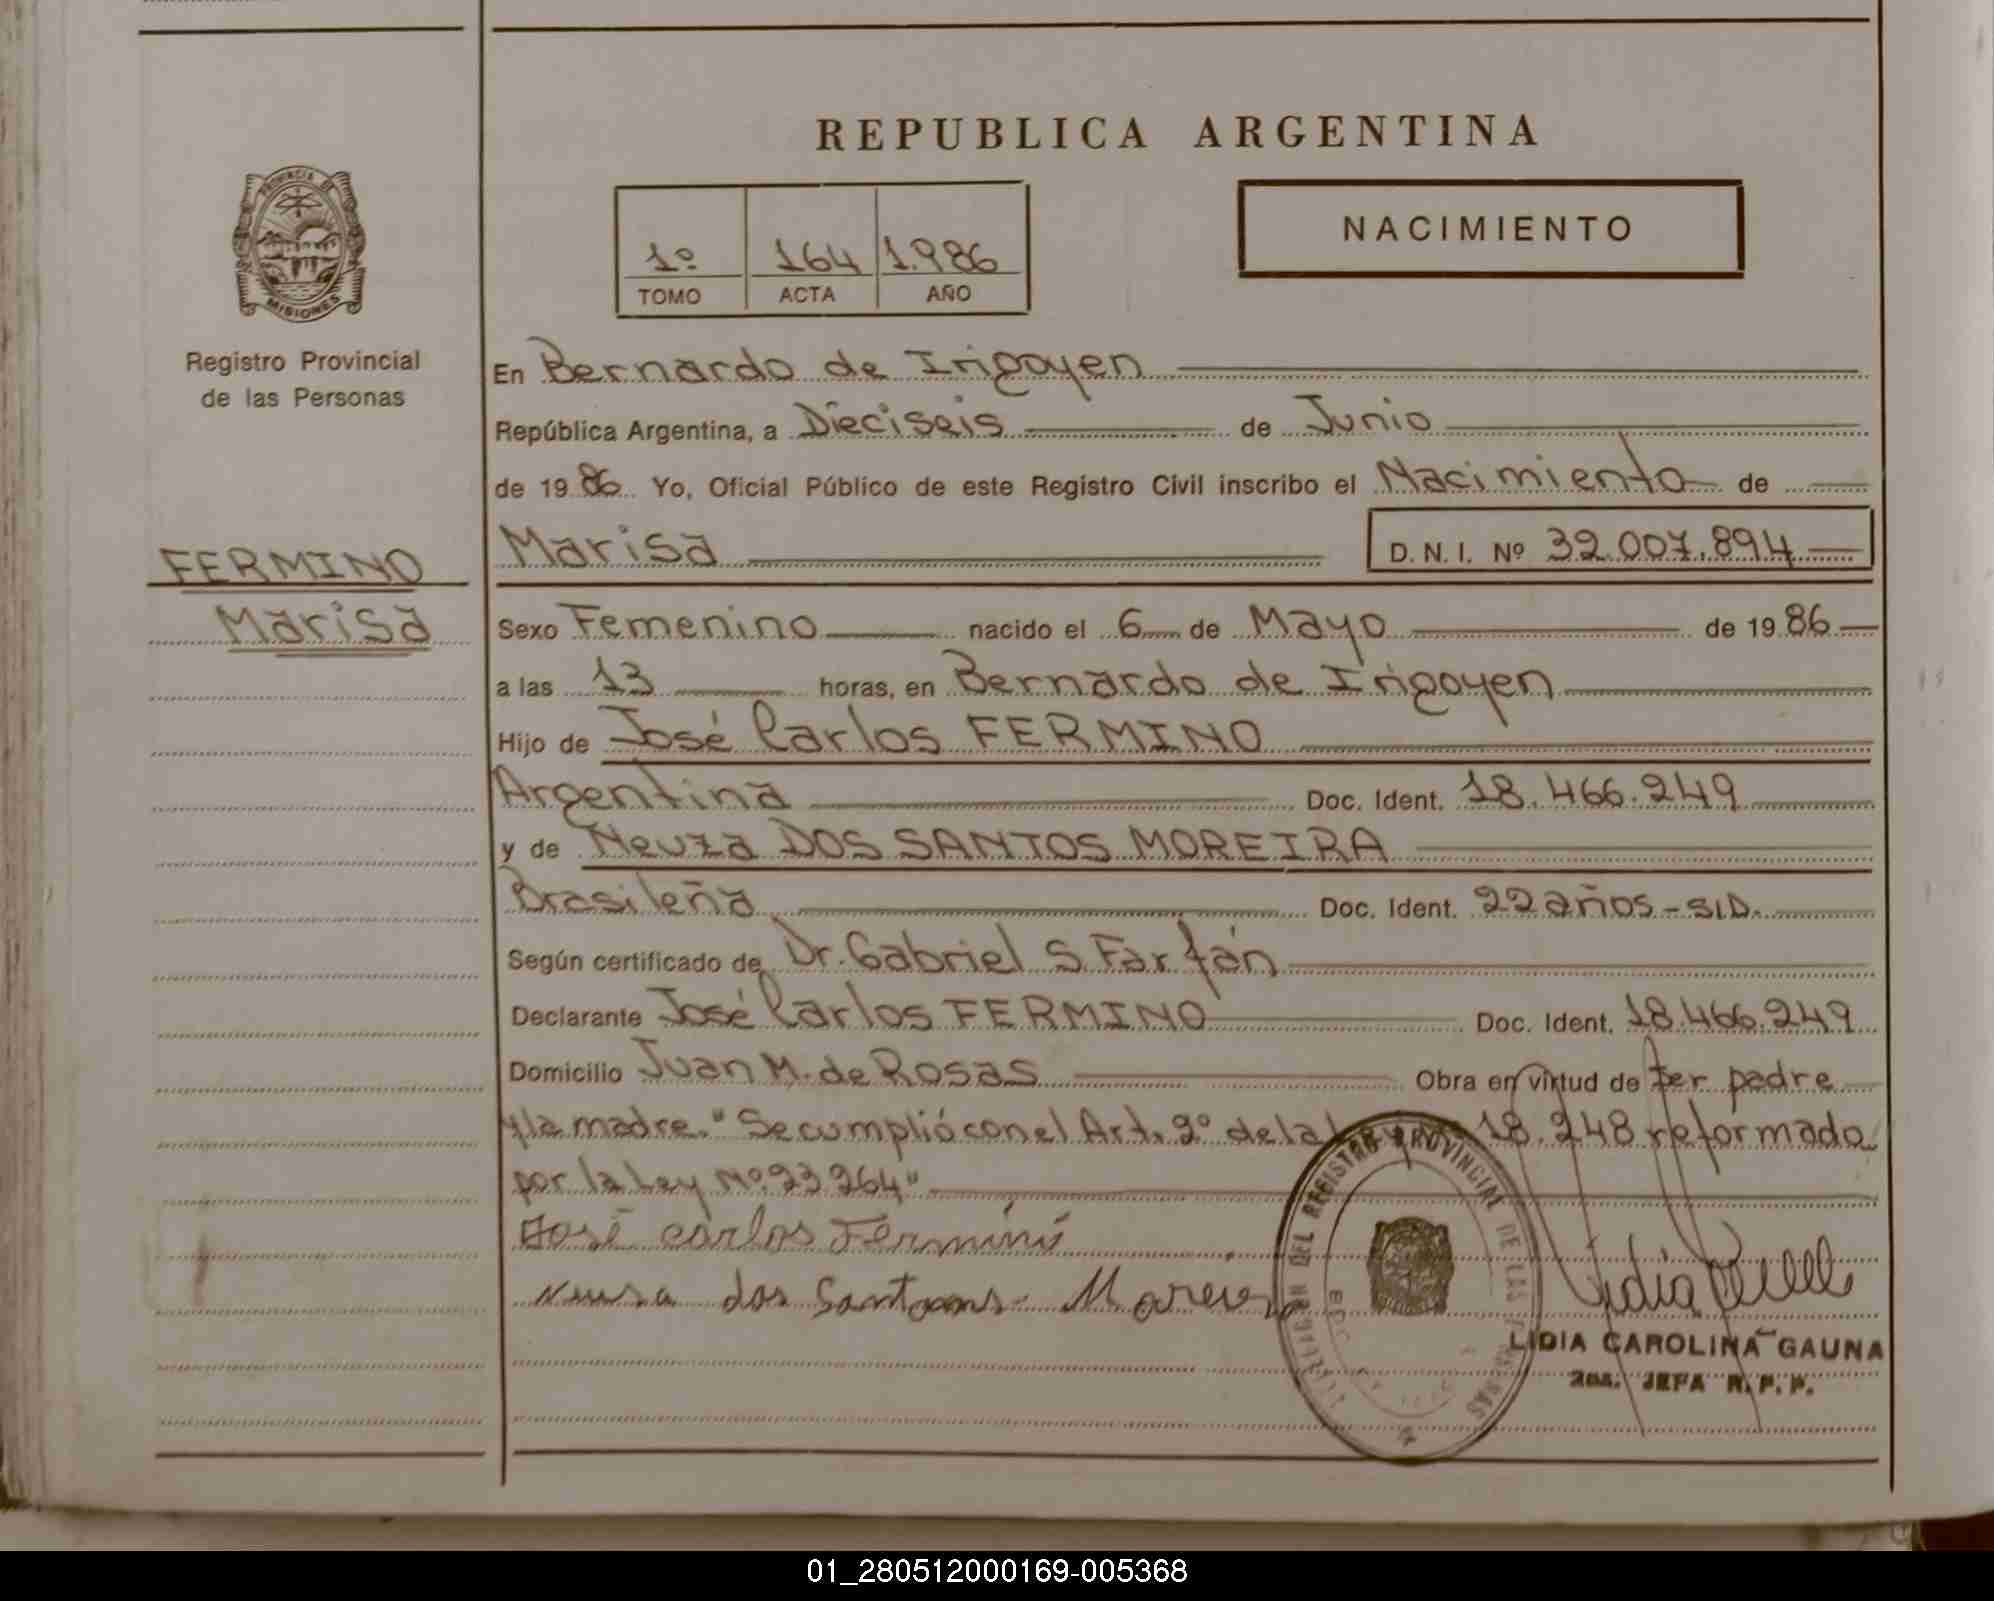 REPUBLICA ARGENTINA
NACIMIENTO
1º 164 1.986
TOMO ACTA AÑO
PROVINCIA DE
MISIONES
Registro Provincial
de las Personas
FERMINO
Marisa
En Bernardo de Irigoyen
República Argentina, a Dieciseis de Junio
de 1986 Yo, Oficial Público de este Registro Civil inscribo el Nacimiento de
Marisa D.N.I. Nº 32.007.894
Sexo Femenino nacido el 6 de Mayo de 1986
a las 13 horas, en Bernardo de Irigoyen
Hijo de José Carlos FERMINO
Argentina Doc. Ident. 18.466.249
y de Neuza DOS SANTOS MOREIRA
Brasileña Doc. Ident. 22 años - S/D.
Según certificado de Dr. Gabriel S. Farfán
Declarante José Carlos FERMINO Doc. Ident. 18.466.249
Domicilio Juan M. de Rosas Obra en virtud de ser padre
y la madre. "Se cumplió con el Art. 2º de la 18.248 reformada
por la Ley Nº 23264"
José carlos Fermino
dos Santos
REGISTRO PROVINCIAL DE LAS
LIDIA CAROLINA GAUNA
2da. JEFA R.P.P.
01_280512000169-005368